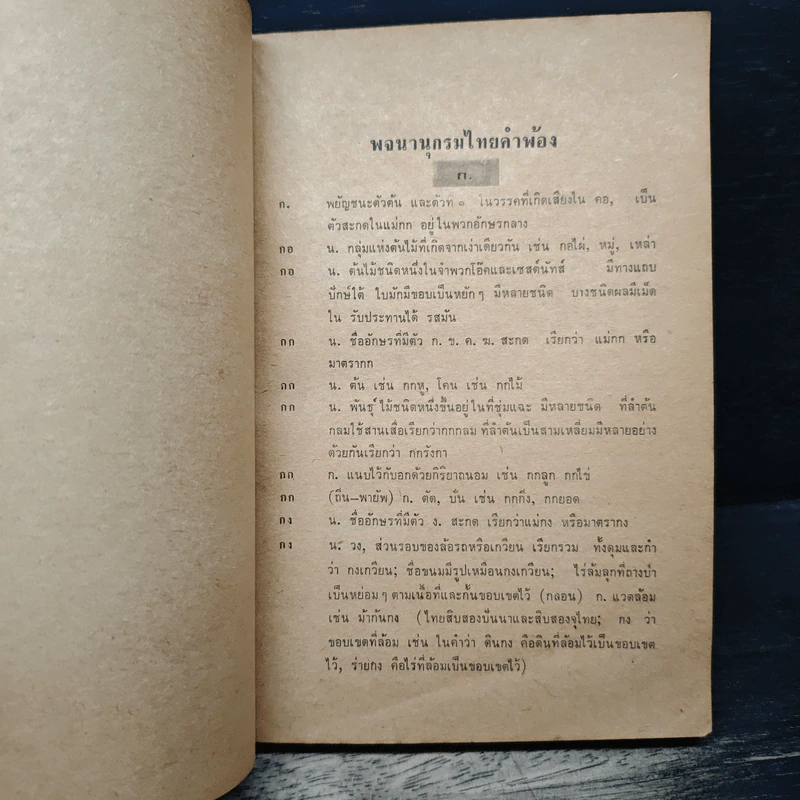 พจนานุกรมไทยคำพ้อง
ก.
ก. พยัญชนะตัวต้น และตัวที่ ๑ ในวรรคที่เกิดเสียงใน คอ, เป็น
ตัวสะกดในแม่กก อยู่ในพวกอักษรกลาง
กอ น. กลุ่มแห่งต้นไม้ที่เกิดจากเง่าเดียวกัน เช่น กอไผ่, หมู่, เหล่า
กอ น. ต้นไม้ชนิดหนึ่งในจำพวกโอ๊คและเชสต์นัทส์ มีทางแถบ
ปักษ์ใต้ ใบมักมีขอบเป็นหยักๆ มีหลายชนิด บางชนิดผลมีเม็ด
ใน รับประทานได้ รสมัน
กก น. ชื่ออักษรที่มีตัว ก. ข. ค. ฆ. สะกด เรียกว่า แม่กก หรือ
มาตรากก
กก น. ต้น เช่น กกหู, โคน เช่น กกไม้
กก น. พันธุ์ไม้ชนิดหนึ่งขึ้นอยู่ในที่ชุ่มแฉะ มีหลายชนิด ที่ลำต้น
กลมใช้สานเสื่อเรียกว่ากกกลม ที่ลำต้นเป็นสามเหลี่ยมมีหลายอย่าง
ด้วยกันเรียกว่า กกรังกา
กก ก. แนบไว้กับอกด้วยกิริยาถนอม เช่น กกลูก กกไข่
กก (ถิ่น–พายัพ) ก. ตัด, บั่น เช่น กกกิ่ง, กกยอด
กง น. ชื่ออักษรที่มีตัว ง. สะกด เรียกว่าแม่กง หรือมาตรากง
กง น. วง, ส่วนรอบของล้อรถหรือเกวียน เรียกรวม ทั้งดุมและกำ
ว่า กงเกวียน; ชื่อขนมมีรูปเหมือนกงเกวียน; ไร่ล้มลุกที่ถางป่า
เป็นหย่อมๆ ตามเนื้อที่และกั้นขอบเขตไว้ (กลอน) ก. แวดล้อม
เช่น ม้ากันกง (ไทยสิบสองปันนาและสิบสองจุไทย; กง ว่า
ขอบเขตที่ล้อม เช่น ในคำว่า ดินกง คือดินที่ล้อมไว้เป็นขอบเขต
ไว้, ร่ายกง คือไร่ที่ล้อมเป็นขอบเขตไว้)